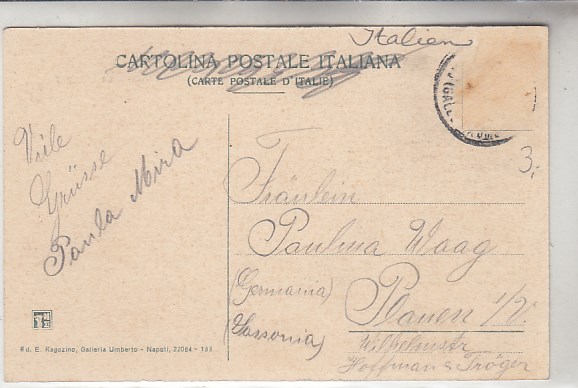 Italien
CARTOLINA POSTALE ITALIANA
(CARTE POSTALE D'ITALIE)
3.-
Viele
Grüsse
Paula Mira
Fräulein
Paulina Waag
(Germania)
Plauen i/V.
(Sassonia)
Wilhelmstr
Hoffman & Tröger
Ed. E. Ragozino, Galleria Umberto - Napoli, 22064 - 133